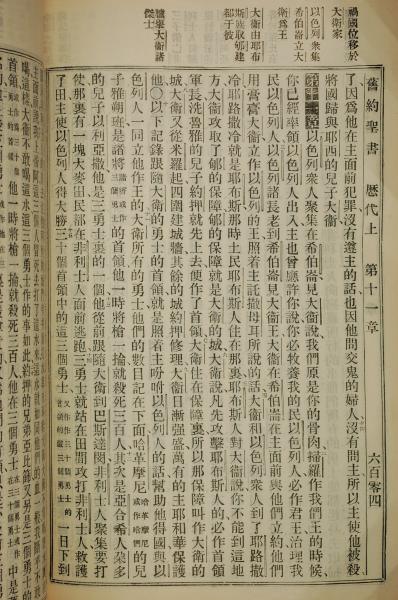 禍國位移於
大衛家
以色列衆集
希伯崙立大
衛爲王
大衛由耶布
斯族取郇建
都于彼
臚舉大衛諸
傑士
舊約聖書 歷代上 第十一章 六百零四
了因爲他在主面前犯罪沒有遵主的話也因他問交鬼的婦人沒有問主所以主使他被殺
將國歸與耶西的兒子大衛
以色列衆人聚集在希伯崙見大衛說我們原是你的骨肉掃羅作我們王的時候
你已經率領以色列人出入主也曾應許你說你必牧養我的民以色列人必作君王治理我
民以色列人以色列諸長老到希伯崙見大衛王大衛在希伯崙在主面前與他們立約他們
用膏膏大衛立作以色列的王照着主託撒母耳所說的話大衛和以色列衆人到了耶路撒
冷耶路撒冷就是耶布斯那時土民耶布斯人住在那裏耶布斯人對大衛說你不能到這地
方大衛攻取了郇的保障郇的保障就是大衛的城大衛說凡先攻擊耶布斯人的必作首領
軍長洗魯雅的兒子約押就先上去便作了首領大衛住在保障裏所以那保障叫作大衛的
城大衛又從米羅起四圍建城牆其餘的城約押修理大衛日漸強盛萬有的主耶和華保護
他〇以下記錄跟隨大衛的勇士的首領就是照着主吩咐以色列人的話幫助他得國與以
色列人一同立他作王的大衛所有的勇士他們的數目記在下面哈革摩尼的兒
子雅朔班是諸將的首領他一時將槍一掄就殺死三百人其次是亞合希人朶多
的兒子以利亞撒他是三勇士裏的一個他從前跟隨大衛到巴斯達閔非利士人聚集要打
使那裏有一塊大麥田民都在非利士人面前逃跑三勇士就站在田間攻打非利士人救護
了田主使以色列人得大勝三十個首領中的這三個勇士一日下到